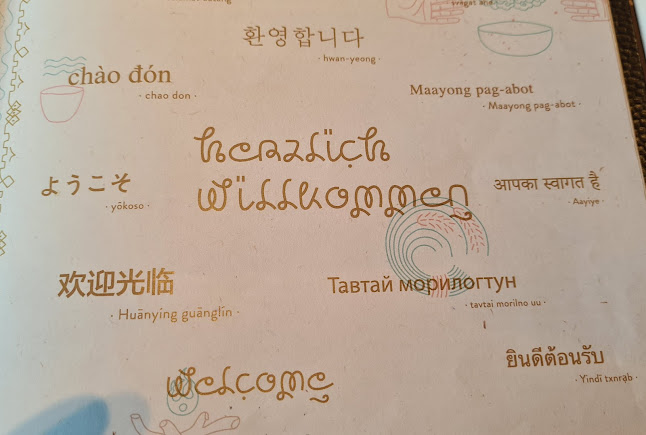 환영합니다
· hwan-yeong ·
chào đón
· chao don ·
Maayong pag-abot
· Maayong pag-abot ·
herzlich
willkommen
ようこそ
· yōkoso ·
आपका स्वागत है
· Aayiye ·
欢迎光临
· Huānyíng guānglín ·
Тавтай морилогтун
· tavtai morilno uu ·
welcome
ยินดีต้อนรับ
· Yindī txnrạb ·